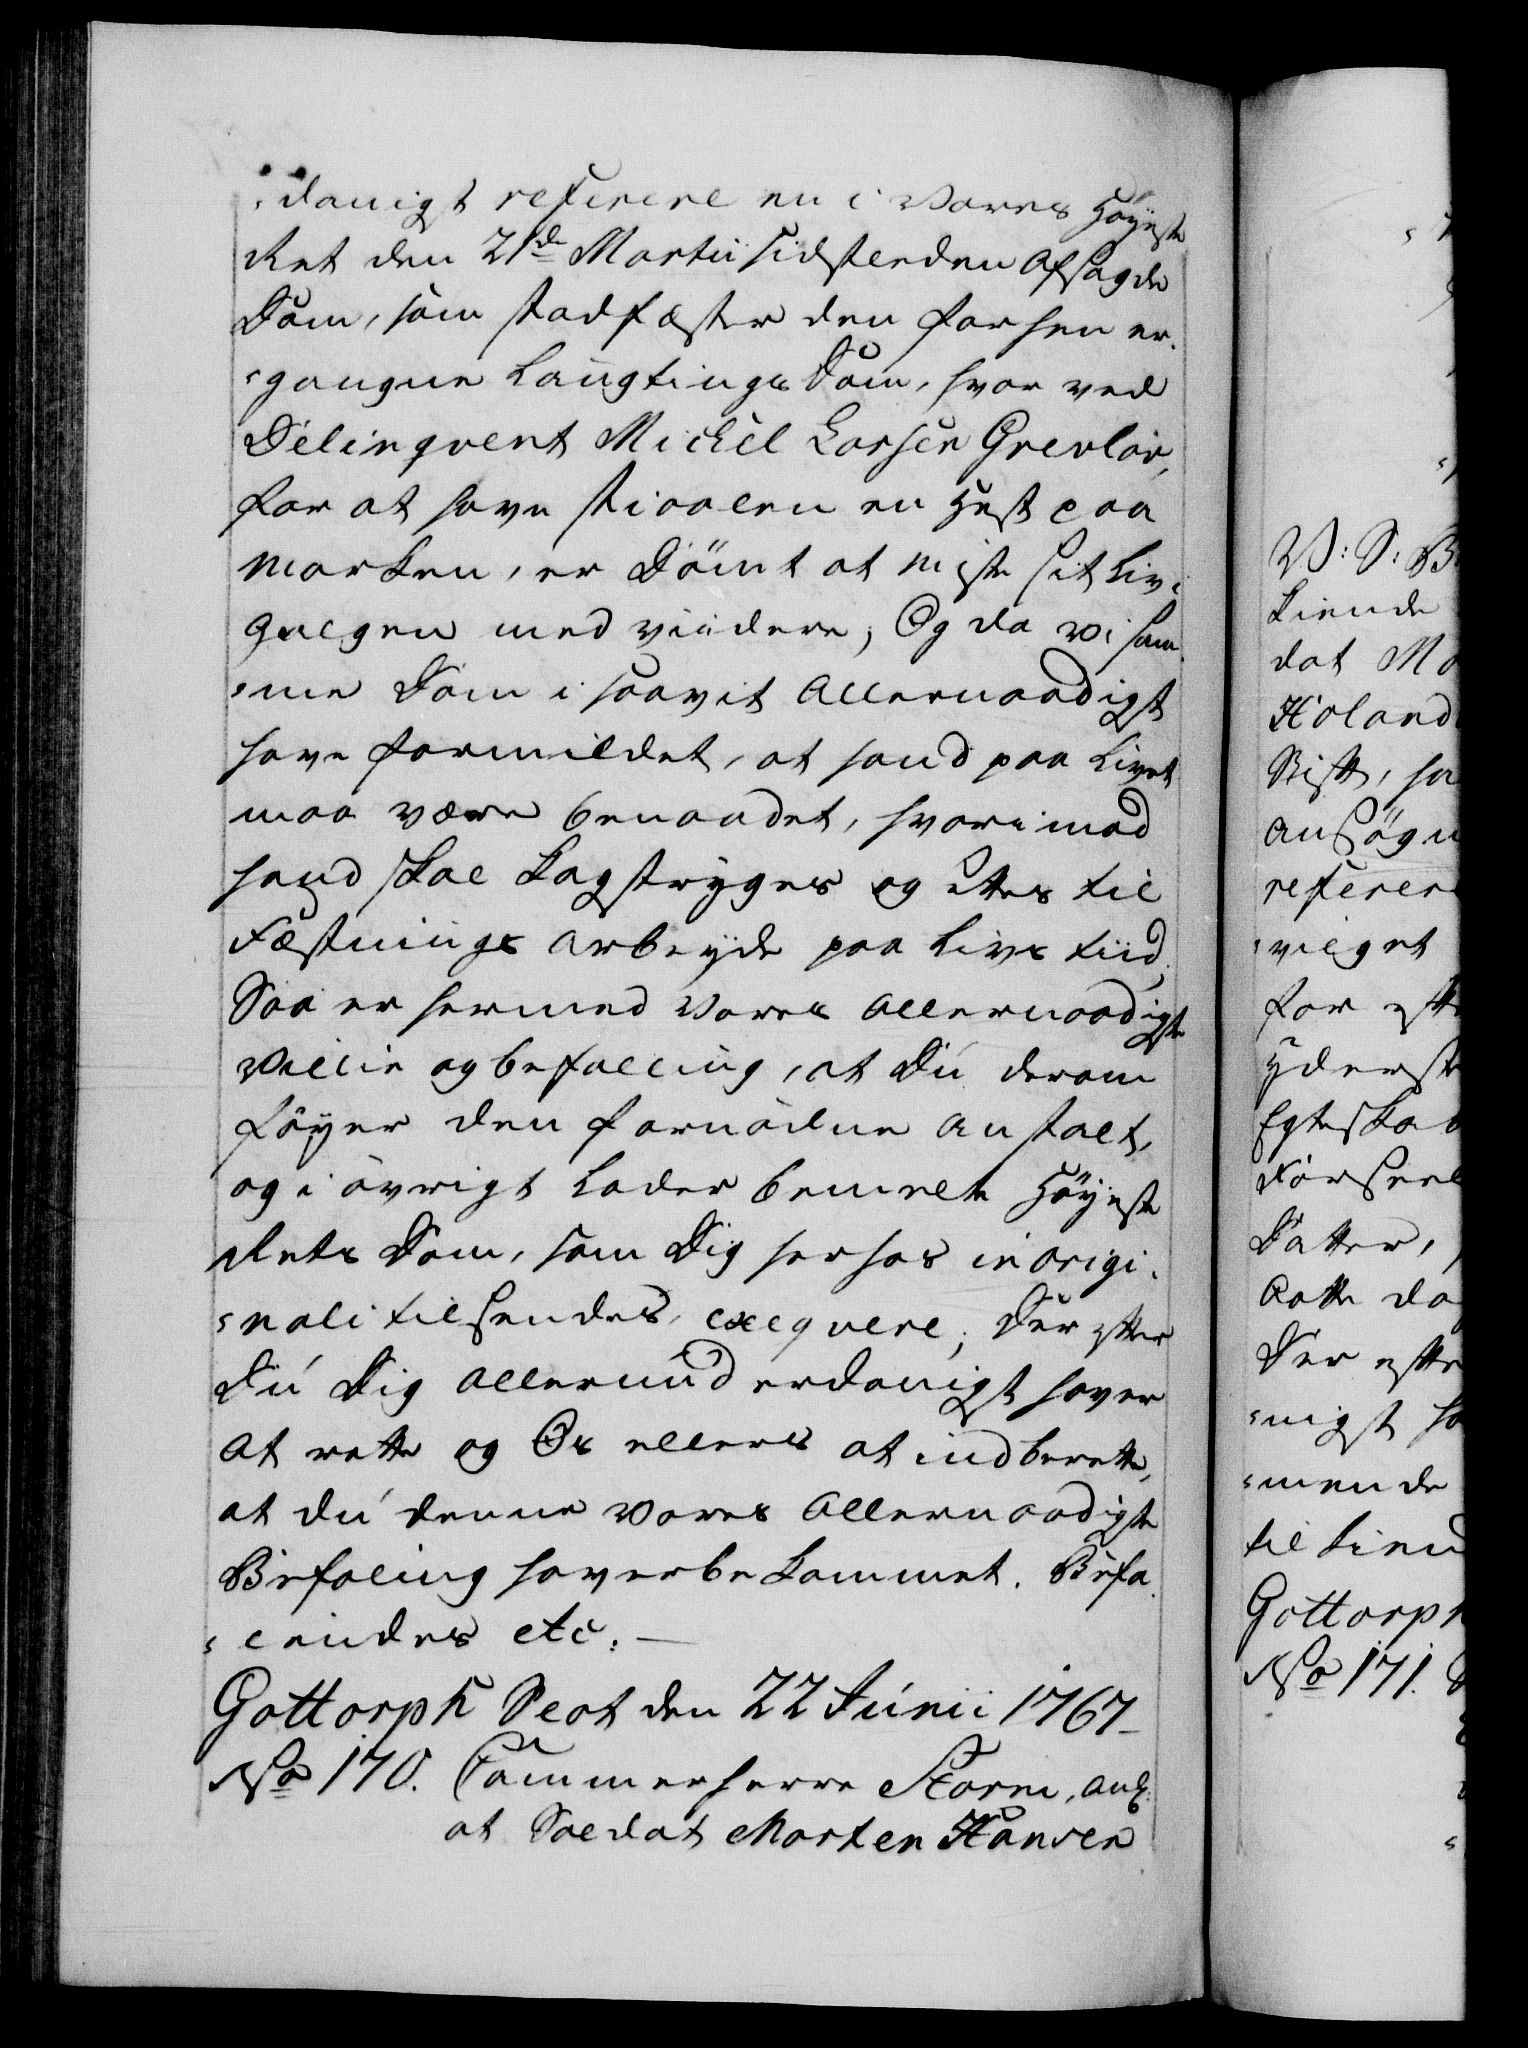 danigst referere en i Vores Høyeste
Ret den 21de Martii sidstleeden Afsagde
Dom, som stadfæster den forhen er-
gangne Laugtings Dom, hvor ved
Delinqvent Mickel Larsen Grevlør,
for at have stiaalen en Hest paa
Marken, er Dömt at miste sit Liv i
Galgen med viidere; Og da vi sam-
me Dom i saavit Allernaadigst
have formildet, at hand paa Livet
maa være benaadet, hvorimod
hand skal Kagstryges og ettes til
Fæstnings Arbeyde paa Livs tiid,
Saa er hermed Vores Allernaadigste
Villie og befalling, at Du derom
föyer den fornödne Anstalt,
og i övrigt Lader bemelte Höyeste
Rets Dom, som Dig herhos in origi-
nali tilsendes, exeqvere; Der efter
Du Dig allerunderdanigst haver
At rette og Os ellers at indberette,
at du denne Vores Allernaadigste
Befaling haver bekommet. Befa-
lendes etc:
Gottorph Slot den 22 Junii 1767
No 170. Cammerherre Storm, ang:
at Soldat Morten Hansen
V: S: B
kiende
dat Mo
Höland
Bist, ha
Ansögn
referer
vilget
for eft
yderst
Egteskab
Forseel
Datter,
Rette da
Der efte
nigst ha
mende
til kiend
Gottorph
No 171.